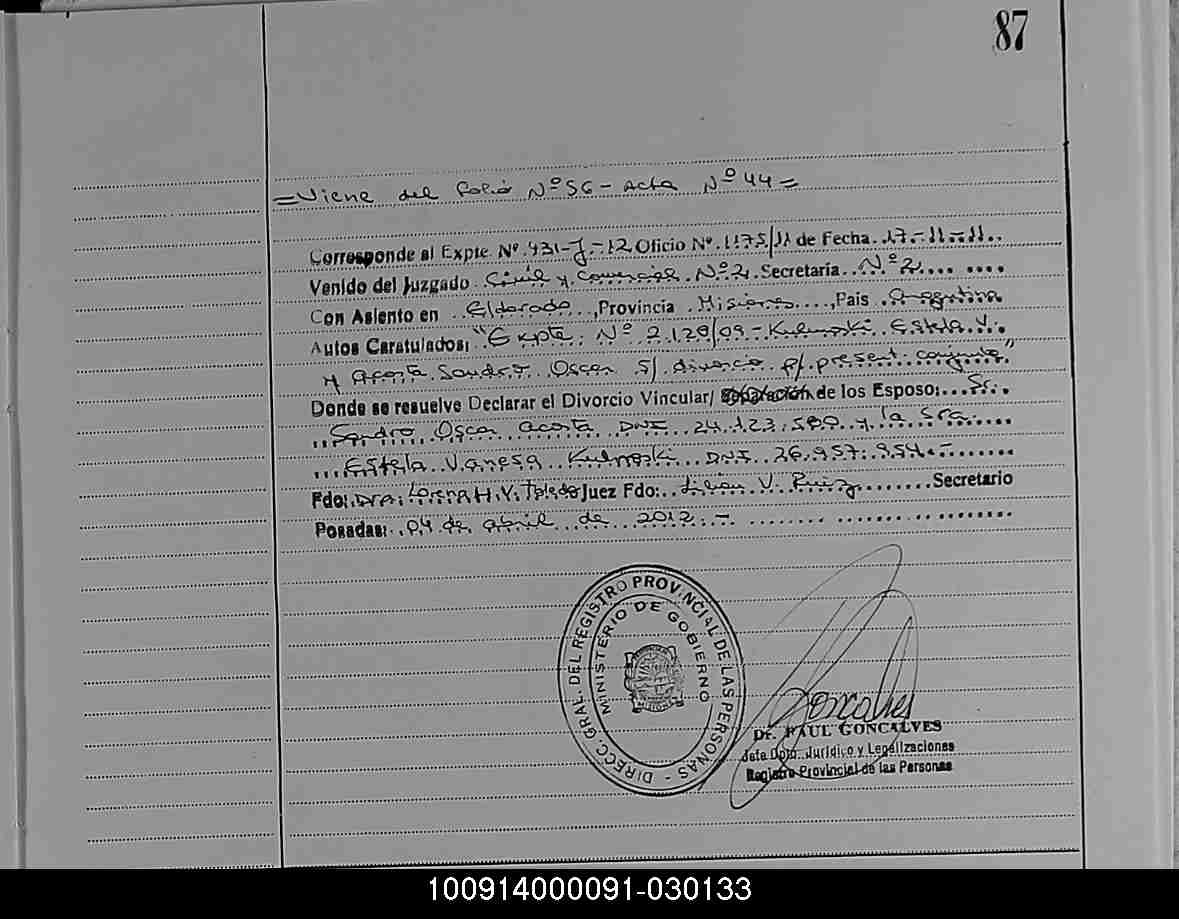 87
=Viene del folio Nº 56 - Acta Nº 44=
Corresponde al Expte Nº. 931-J-12 Oficio Nº. 1175/11 de Fecha. 17-11-11..
Venido del Juzgado Civil y Comercial Nº 2. Secretaría Nº 2
Con Asiento en Eldorado, Provincia Misiones, País Argentina
Autos Caratulados: "Expte. Nº 2.129/09 - Estela V.
y Acosta Sandro Oscar S/ divorcio p/ present. conjunta"
Donde se resuelve Declarar el Divorcio Vincular/ Separación de los Esposo: Sr.
Sandro Oscar Acosta DNI 24.123.589 y la Sra.
Estela Vanesa DNI 26.957.954.-
Fdo: Dra. Lorena H.V. Toledo Juez Fdo: Lilian V. Ruiz Secretario
Posadas: 04 de abril de 2012.-
DIRECC. GRAL. DEL REGISTRO PROVINCIAL DE LAS PERSONAS -
MINISTERIO DE GOBIERNO
MISIONES
Goncalves
Dr. RAUL GONCALVES
Jefe Dpto. Jurídico y Legalizaciones
Registro Provincial de las Personas
100914000091-030133